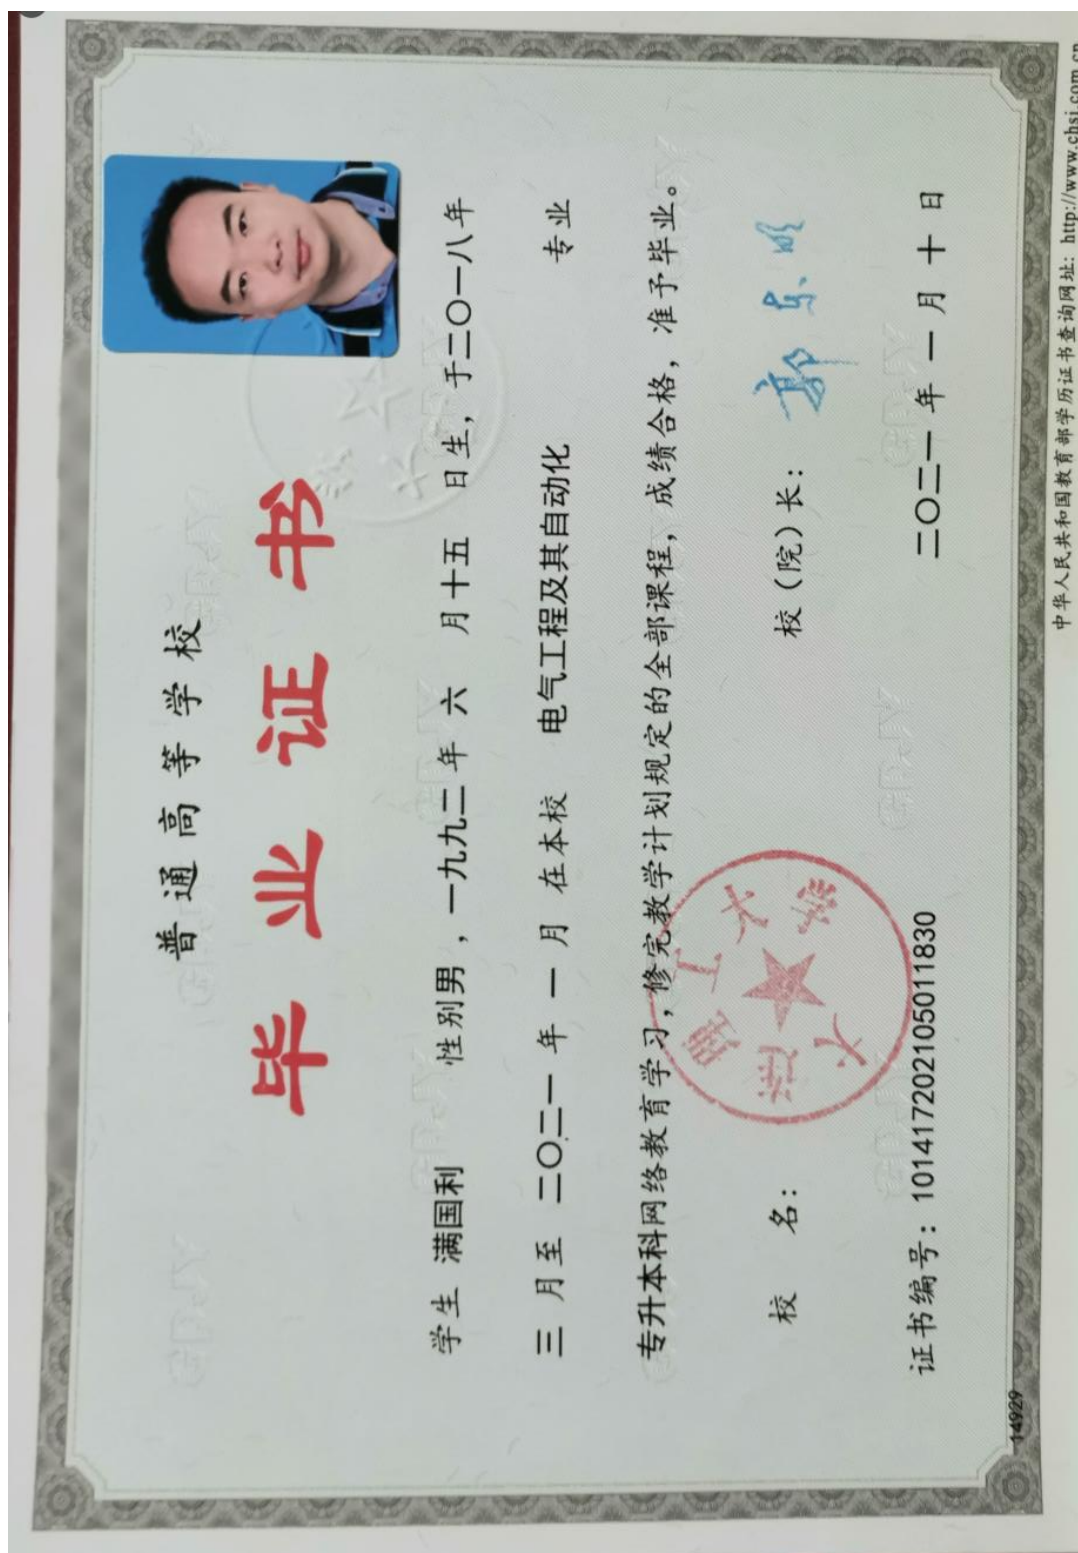 普通高等学校
毕业证书
学生 满国利 性别男，一九九二年 六 月十五 日生，于二〇一八年
三 月至 二〇二一 年 一 月 在本校 电气工程及其自动化 专业
专升本科网络教育学习，修完教学计划规定的全部课程，成绩合格，准予毕业。
校 名： 大连理工大学 校（院）长： 郭东明
证书编号：101417202105011830 二〇二一 年 一 月 十 日
14929
中华人民共和国教育部学历证书查询网址：http://www.chsi.com.cn